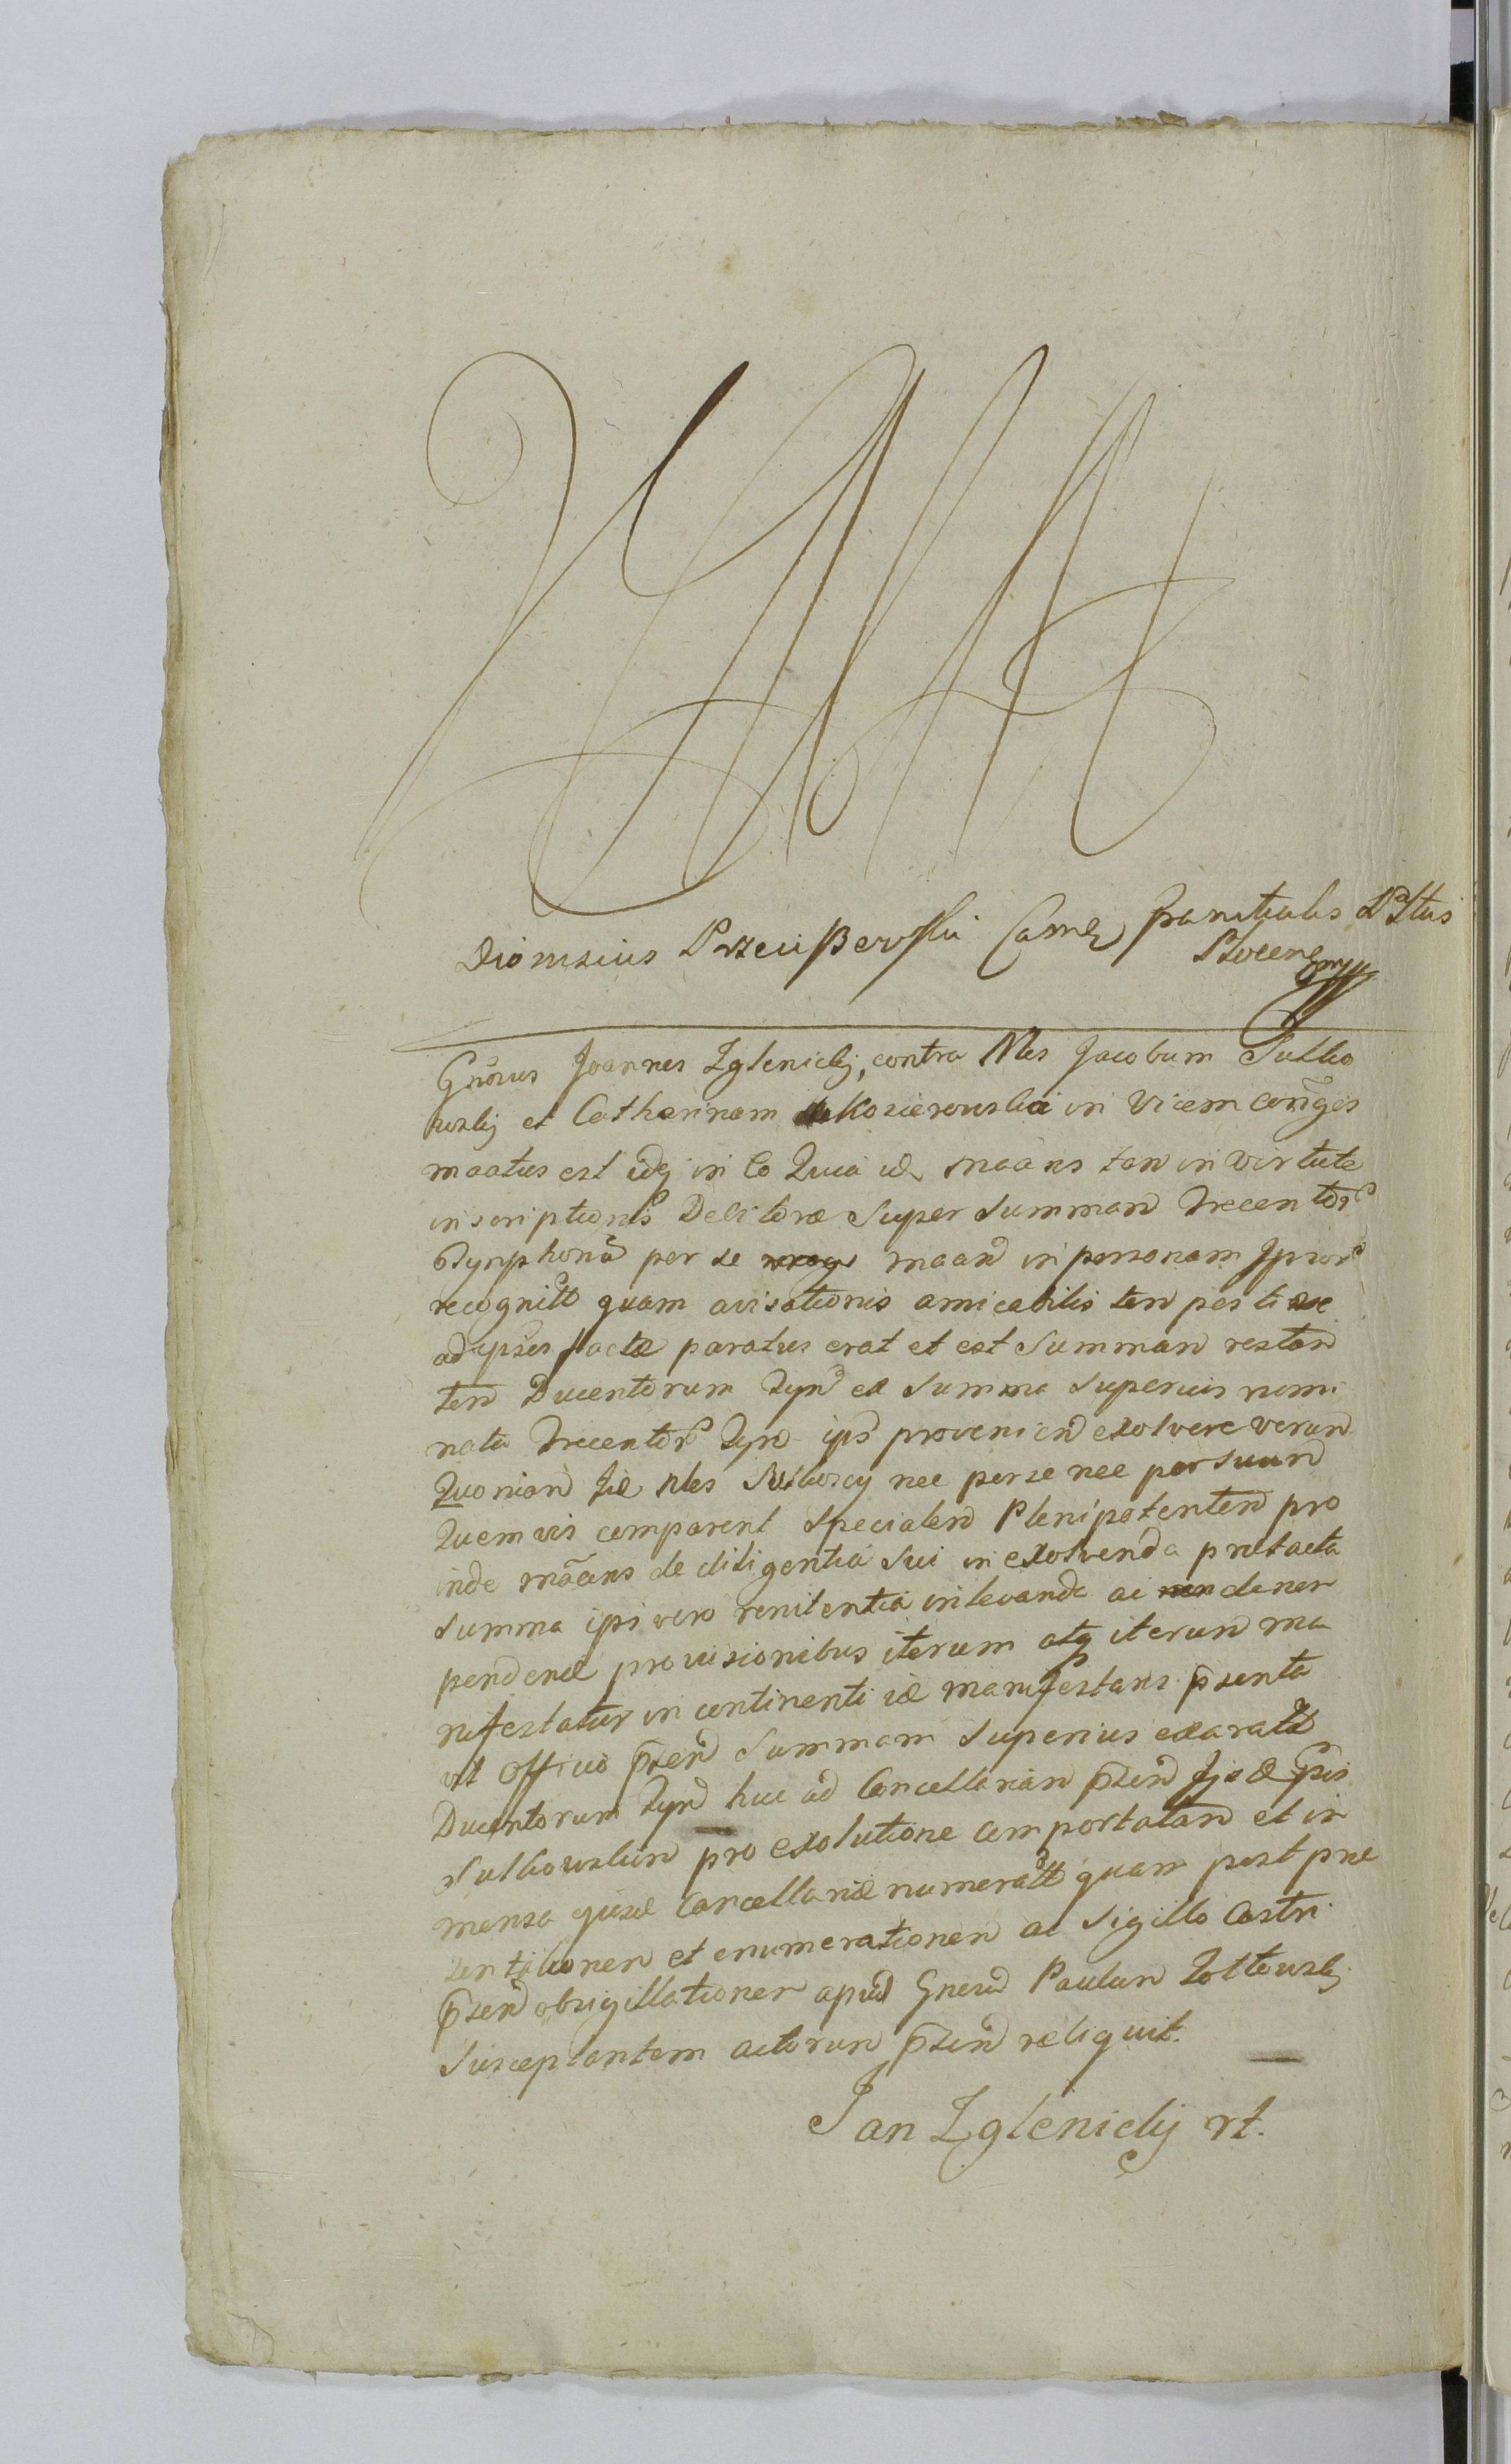 Dionisius Przeciszewski Camer Granitialis Pltus
Plocen mpp
Gnosus Joannes Zglenicky, contra Nles Jacobum Sulko
wsky et Catharinam de Kozierowskie in vicem conges
maatus est idq in eo Quia id maans tam in virtute
inscriptionis Debitoræ super summam Trecentor
Tynphona per se maand in personam Ipsor
recognitt quam avisationis amicabilis tempestive
ad ipsos factæ paratus erat et est summam restan
tem Ducentorum Tynf ex summa superius nomi
nata Trecentor Tynf ips provenien exolvere verum
Quoniam Jid Nles Sulkoscy nec per se nec per suum
Quemvis comparent specialem Plenipotentem pro
inde maans de diligentia sui in exolvenda prætacta
summa ipsi vero renitentia in levanda ac dener
pendend provisionibus iterum atq iterum ma
nifestatur in continenti id manifestans psenta
vit officio psen summam superius exaratt
Ducentorum Tynf huc ad Cancellariam psen
Sulkowskim pro exolutione comportatam et in
mensa ejusd Cancellariæ numeratt quam post præ
sentationem et enumerationem ac sigillo Castri
psen obsigillationem apud Gnosum Paulum Zottowsky
susceptantem actorum psen reliquit.
Jan Zglenicky rt.